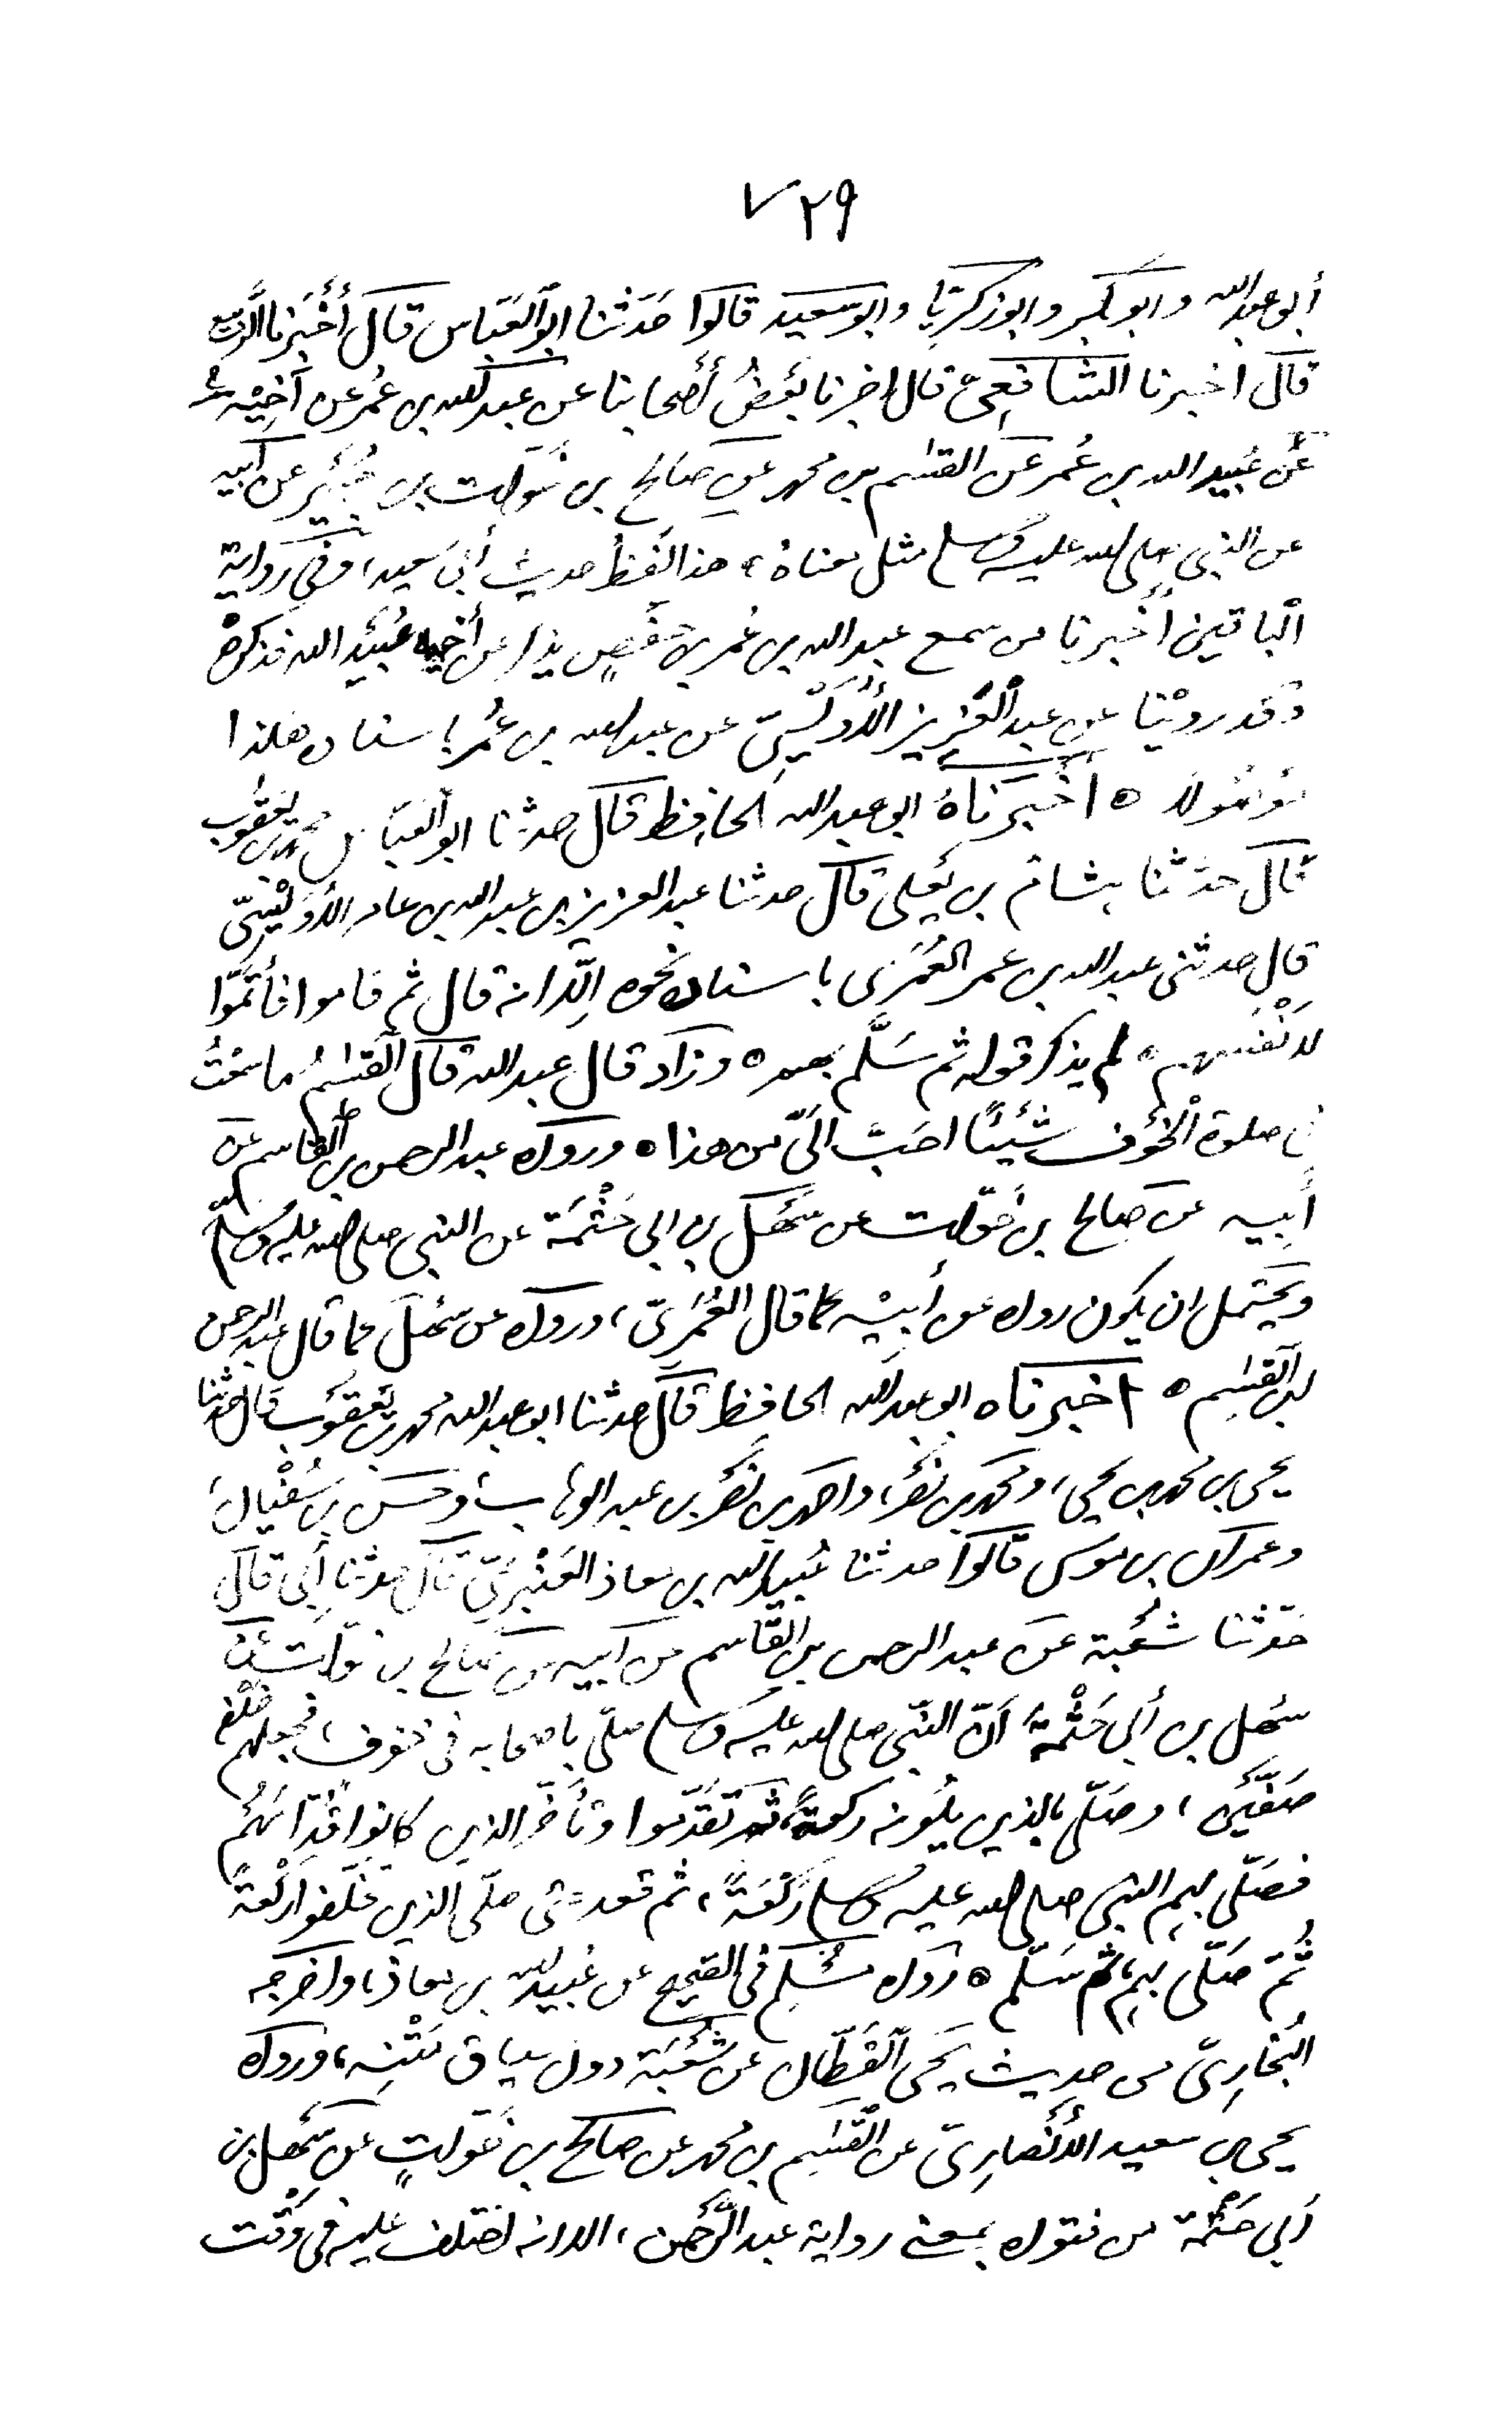 ٧٢٩
أبو عبد الله وابو بكر وابو زكريا وابو سعيد قالوا حدثنا ابو العباس قال أخبرنا الربيع
قال اخبرنا الشافعى قال اخبرنا بعض أصحابنا عن عبد الله بن عمر عن أخيه
عن عبيد الله بن عمر عن القسم بن محمد عن صالح بن خوات بن جبير عن ابيه
عن النبى صلى الله عليه وسلم مثل معناه، هذا لفظ حديث أبى سعيد، وفى رواية
الباقين أخبرنا من سمع عبد الله بن عمر بن حفص يذكر عن أخيه عبيد الله فذكره
وقد روينا عن عبد العزيز الأويسى عن عبد الله بن عمر باسناده هذا
موصولا ه أخبرناه ابو عبد الله الحافظ قال حدثنا ابو العباس محمد بن يعقوب
قال حدثنا هشام بن يعلى قال حدثنا عبد العزيز بن عبد الله بن عامر الأويسى
قال حدثنى عبد الله بن عمر العمرى باسناده نحوه الا انه قال ثم قاموا فأتموا
لأنفسهم ه لم يذكر قوله ثم سلم بهم ه وزاد قال عبد الله قال القسم ما سمعت
فى صلوة الخوف شيئا احب الى من هذا ه ورواه عبد الرحمن بن القاسم عن
أبيه عن صالح بن خوات عن سهل بن ابى حثمة عن النبى صلى الله عليه وسلم
ويحتمل ان يكون رواه عن أبيه كما قال العمرى، ورواه عن سهل كما قال عبد الرحمن
بن القسم ه اخبرناه ابو عبد الله الحافظ قال حدثنا ابو عبد الله محمد بن يعقوب قال حدثنا
يحيى بن محمد بن يحيى، ومحمد بن نصر، واحمد بن نصر بن عبد الوهاب، وحسن بن سفيان،
وعمران بن موسى قالوا حدثنا عبيد الله بن معاذ العنبرى قال حدثنا أبى قال
حدثنا شعبة عن عبد الرحمن بن القاسم عن ابيه عن صالح بن خوات عن
سهل بن أبى حثمة أن النبى صلى الله عليه وسلم صلى باصحابه فى خوف، فجعلهم خلفه
صفين، وصلى بالذين يلونه ركعة، ثم تقدموا وتأخر الذين كانوا قدامهم
فصلى بهم النبى صلى الله عليه وسلم ركعة، ثم قعد حتى صلى الذين تخلفوا ركعة
ثم صلى بهم، ثم سلم ه رواه مسلم فى الصحيح عن عبيد الله بن معاذ، واخرجه
البخارى من حديث يحيى القطان عن شعبة دون سياق متنه، ورواه
يحيى بن سعيد الأنصارى عن القسم بن محمد عن صالح بن خوات عن سهل بن
أبى حثمة من قوله بمعنى رواية عبد الرحمن، الا انه اختلف عليه فى وقت